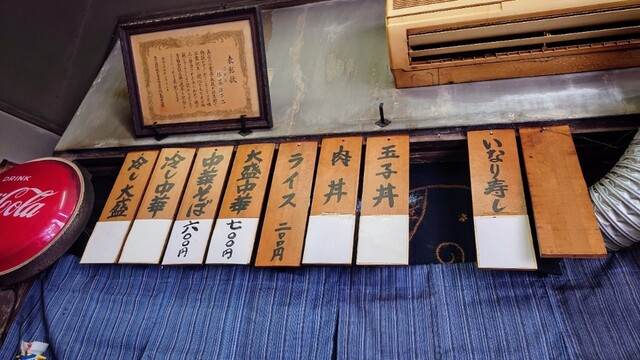 DRINK
Coca-Cola
表彰状
冷し大盛
冷し中華
中華そば
六〇〇円
大盛中華
七〇〇円
ライス
二〇〇円
肉丼
玉子丼
いなり寿し